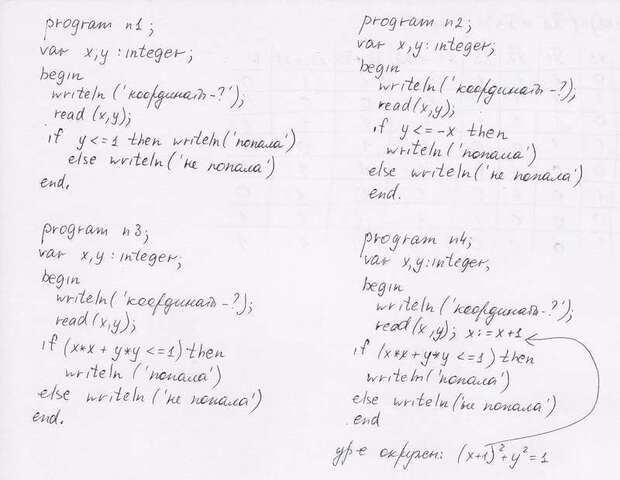 program n1;
var x,y : integer;
begin
writeln ('координаты-?');
read (x,y);
if y<=1 then writeln('попала')
else writeln('не попала')
end.
program n2;
var x,y: integer;
begin
writeln('координаты-?);
read(x,y);
if y<=-x then
writeln('попала')
else writeln('не попала')
end.
program n3;
var x,y : integer;
begin
writeln ('координаты-?);
read(x,y);
if (x*x + y*y <=1) then
writeln ('попала')
else writeln ('не попала')
end.
program n4;
var x,y:integer;
begin
writeln('координаты-?');
read(x,y); x:=x+1
if (x*x+y*y <=1) then
writeln('попала')
else writeln('не попала')
end
ур-е окружн: (x+1)²+y²=1